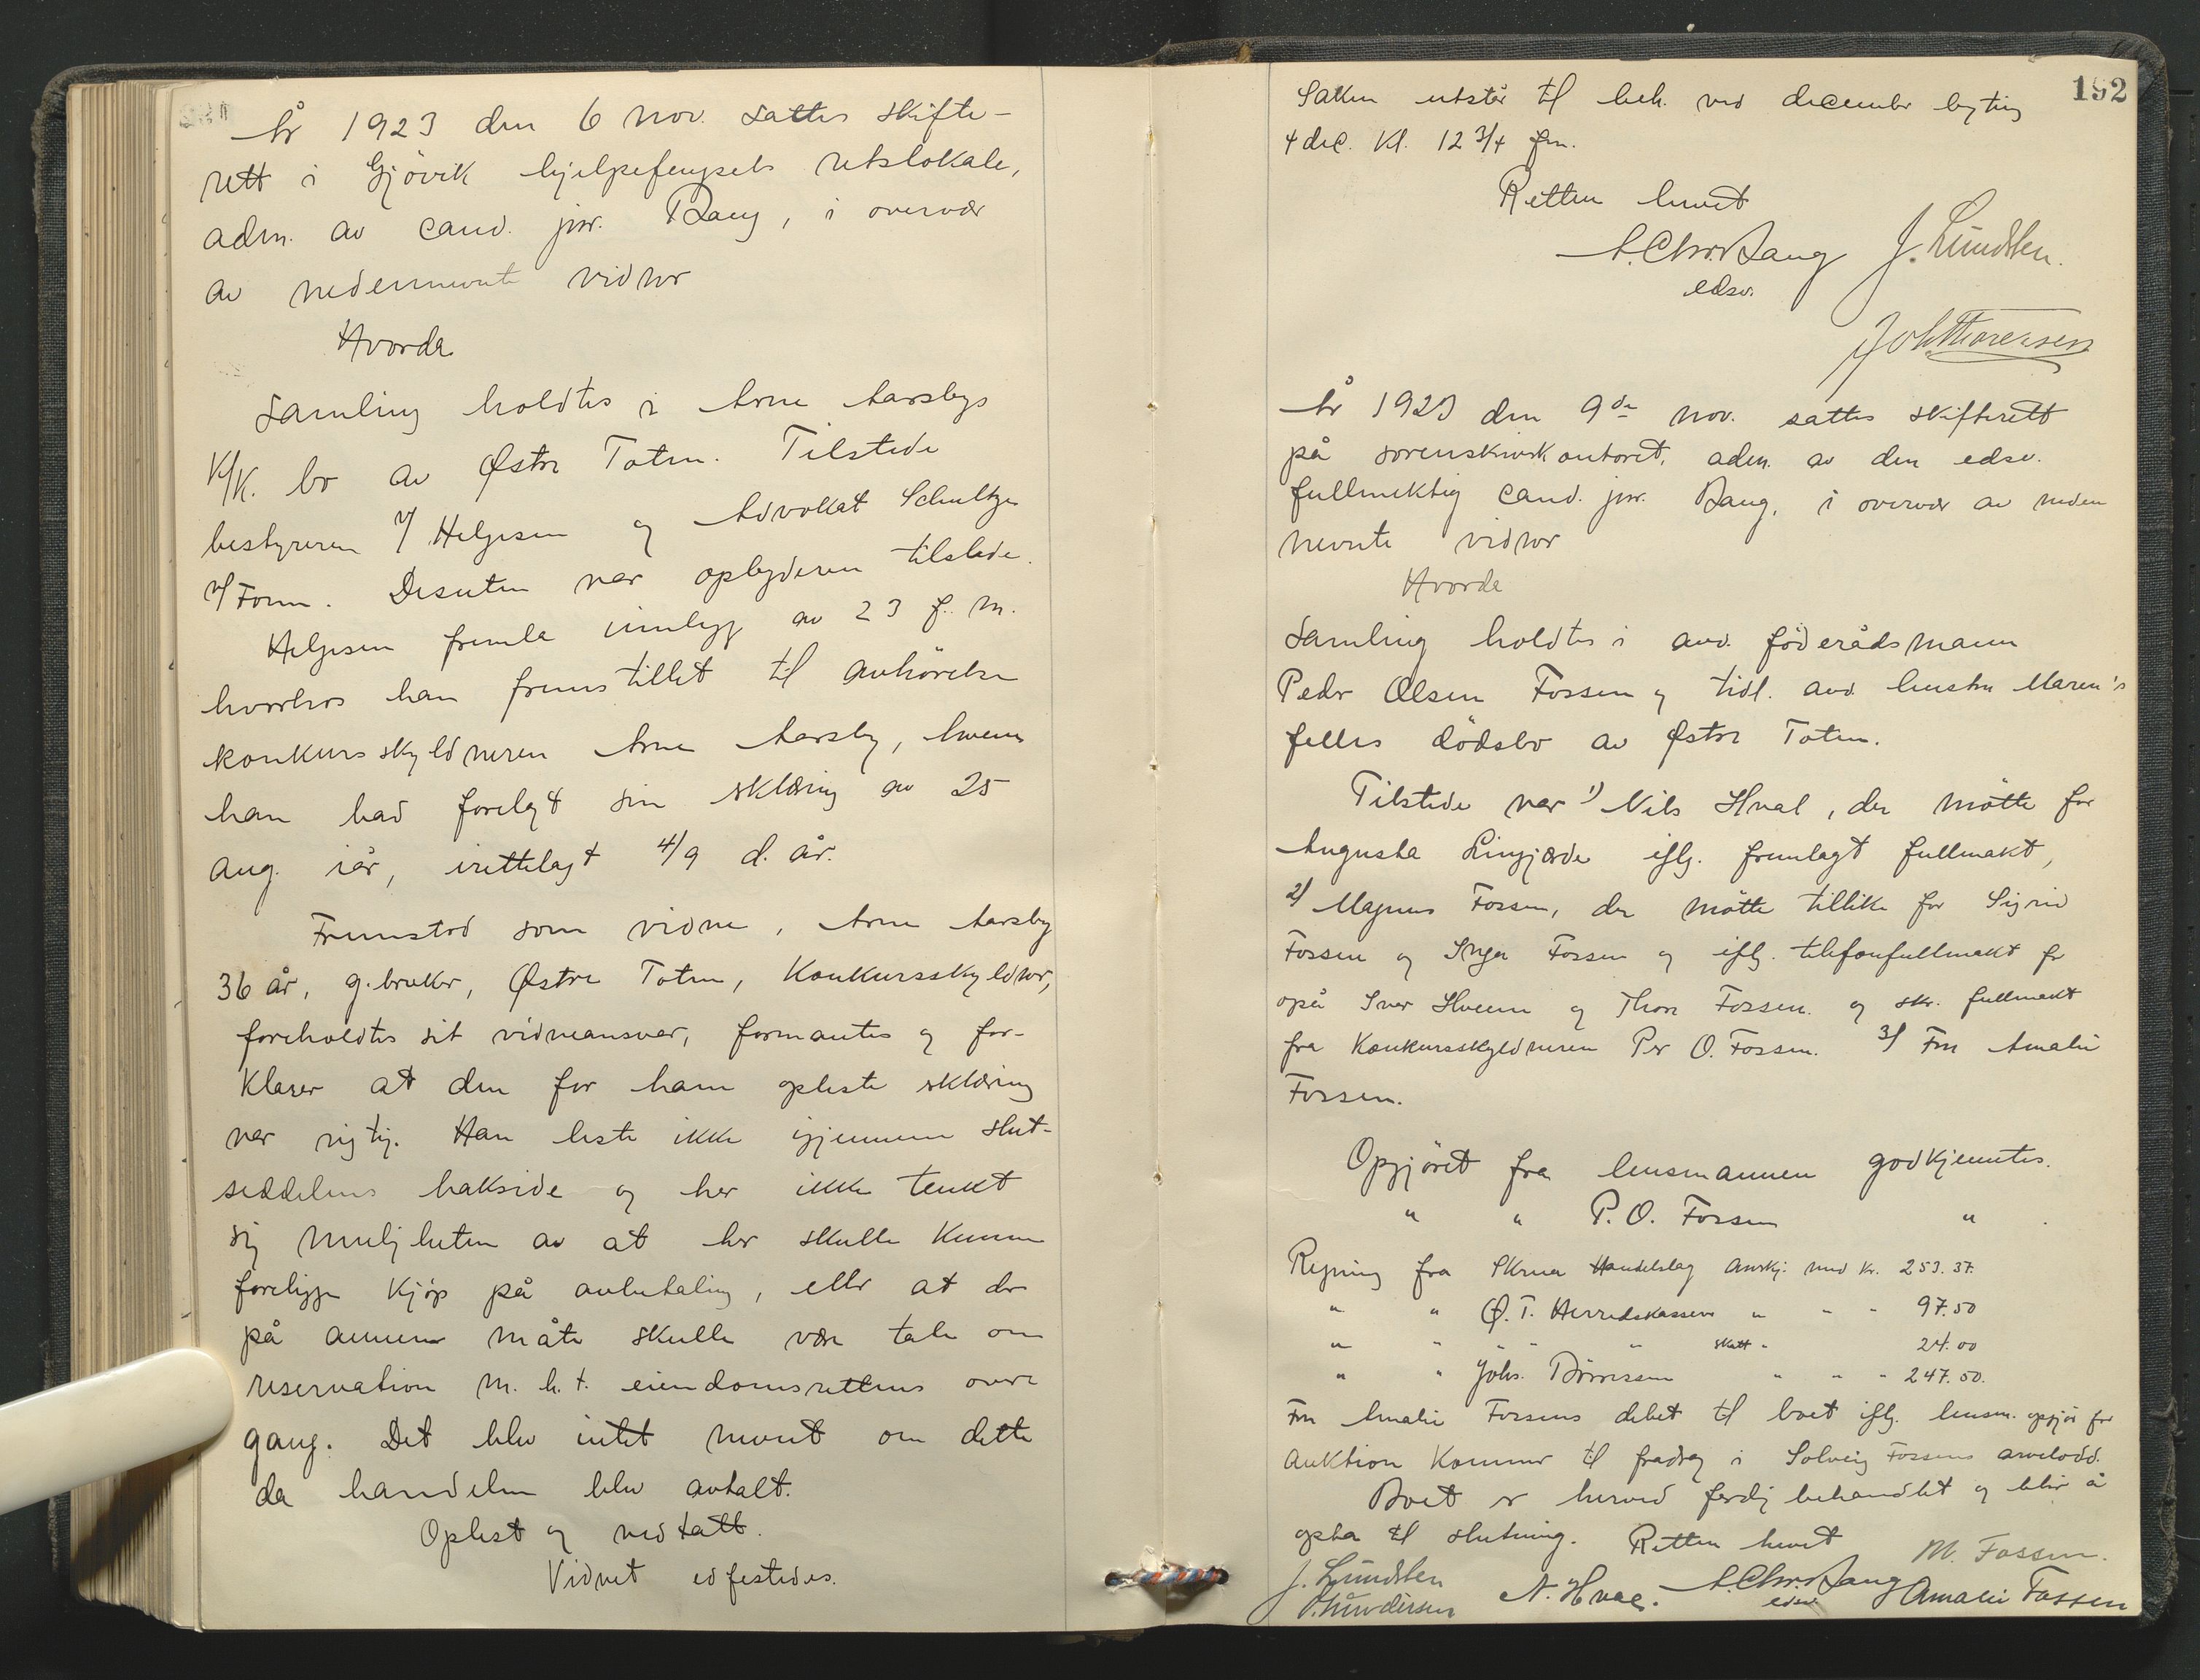 År 1923 den 6 nov. sattes skifte-
rett i Gjövik hjelpefengsels retslokale,
adm. av cand. jur. Bang, i overvær
av nedennevnte vidner
Hvorda
Samling holdtes i Arne Aarsbys
K/K. bo av Østre Toten. Tilstede
bestyreren v/ Helgesen og Advokat Schultze
v/ Form. Desuten var opbyderen tilstede.
Helgesen fremla innlegg av 23 f. m.
hvorhos han fremstillet til avhörelse
konkursskyldneren Arne Aarsby, hvem
han bad forelagt sin erklæring av 25
aug. iår, irettelagt 4/9 d. år.
Fremstod som vidne, Arne Aarsby
36 år, g.bruker, Østre Toten, Konkursskyldner,
foreholdtes sit vidneansvar, formantes og for-
klarer at den for ham opleste erklæring
var rigtig. Han leste ikke igjennem slut-
seddelens bakside og har ikke tenkt
sig muligheten av at her skulle kunne
foreligge kjøp på avbetaling, eller at der
på annen måte skulle være tale om
reservation m. h. t. eiendomsrettens over-
gang. Det blev intet nevnt om dette
da handelen blev avtalt.
Oplest og vedtatt.
Vidnet edfestedes.
192
Saken utstår til beh. ved december bygting
4 dec. Kl. 12 3/4 fm.
Retten hevet
A. Chr. Bang J. Lundsten.
edsv.
Joh Thoresen
År 1923 den 9de nov. sattes skifterett
på sorenskriverkontoret, adm. av den edsv.
fullmektig cand. jur. Bang, i overvær av neden
nevnte vidner
Hvorda
Samling holdtes i avd. föderådsmann
Peder Olsen Fossen og tidl. avd. hustru Maren's
felles dödsbo av Østre Toten.
Tilstede var 1) Nils Hval, der mötte for
Augusta Lingjærde iflg. fremlagt fullmakt,
2) Magnus Fossen, der mötte tillike for Sigrid
Fossen og Inga Fossen og iflg. telefonfullmakt fr
også Iver Hveem og Thora Fossen. og skr. fullmakt
fra Konkursskyldneren Per O. Fossen. 3) Fru Amalie
Fossen.
Opgjöret fra lensmannen godkjentes.
" " P. O. Fossen "
Regning fra Skreia Handelslag anerkj. med kr. 253.37.
" " Ø. T. Herredskassen " " " 97.50
" " " " skatt " 24.00
" " Johs. Börresen " " " 247.50.
Fru Amalie Fossens debet til boet iflg. lensm. opgjör for
auktion kommer til fradrag i Solveig Fossens arvelodd.
Boet er herved ferdig behandlet og blir å
opta til slutning. Retten hevet M. Fossen.
J. Lundsten N. Hval. A. Chr. Bang Amalie Fossen
edsv.